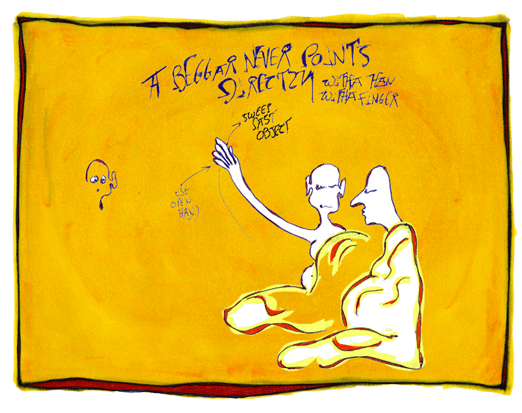 A BEGGAR NEVER POINTS
DIRECTLY WITHA
WITHA FINGER
SWEEP
PAST
OBJECT
USE
OPEN
HAND